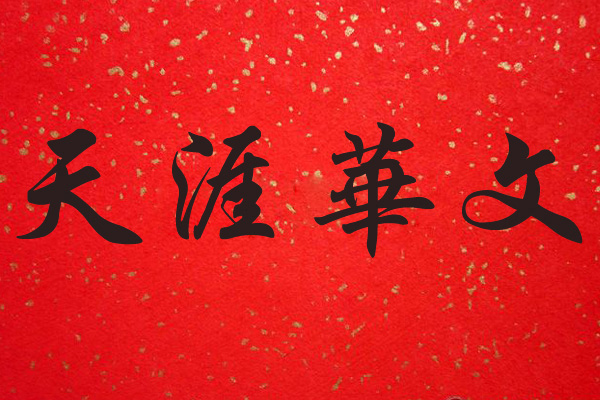 天涯華文